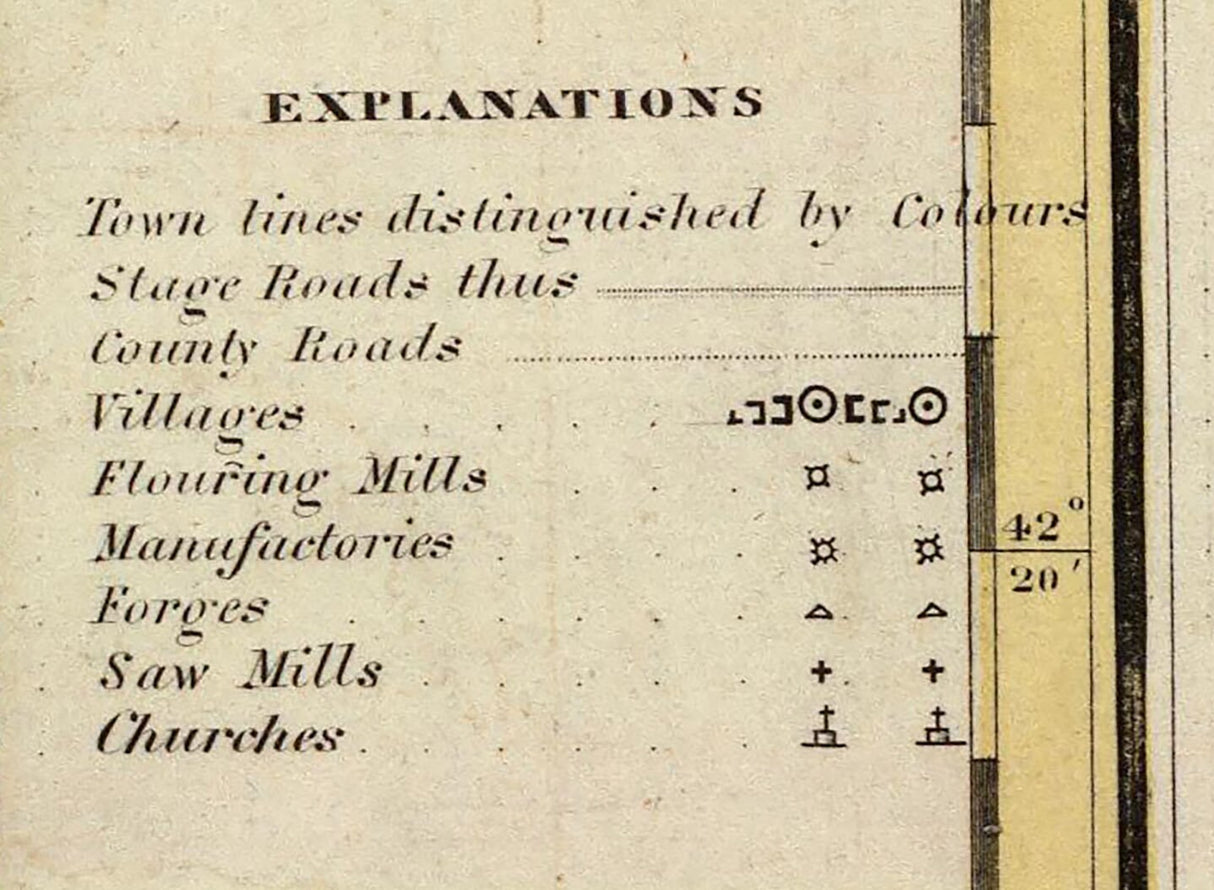 EXPLANATIONS
Town lines distinguished by Colours
Stage Roads thus
County Roads
Villages
Flouring Mills
Manufactories
Forges
Saw Mills
Churches
42°
20'